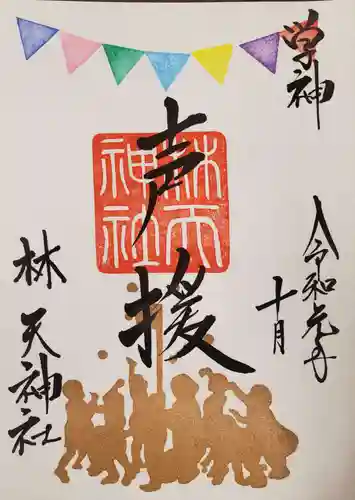 学神
令和元年
十月
声援
林天
神社
林天神社